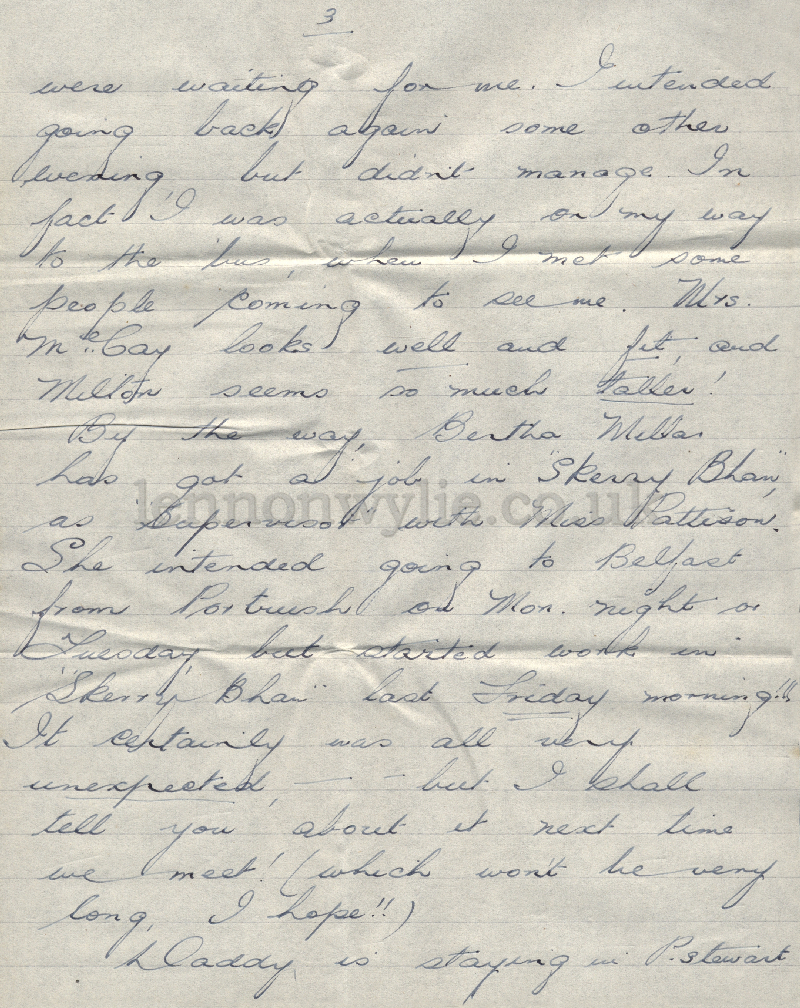 3
were waiting for me. I intended
going back again some other
evening but didn't manage. In
fact I was actually on my way
to the bus, when I met some
people coming to see me. Mrs.
McCay looks well and fit, and
Milton seems so much taller!
By the way, Bertha Millar
has got a job in "Skerry Bhan",
as "Supervisor" with Miss Pattison.
She intended going to Belfast
from Portrush on Mon. night or
Tuesday, but started work in
"Skerry Bhan" last Friday morning!!!
It certainly was all very
unexpected, — — but I shall
tell you about it next time
we meet! (which won't be very
long, I hope!!)
Daddy is staying in P.stewart
lennonwylie.co.uk